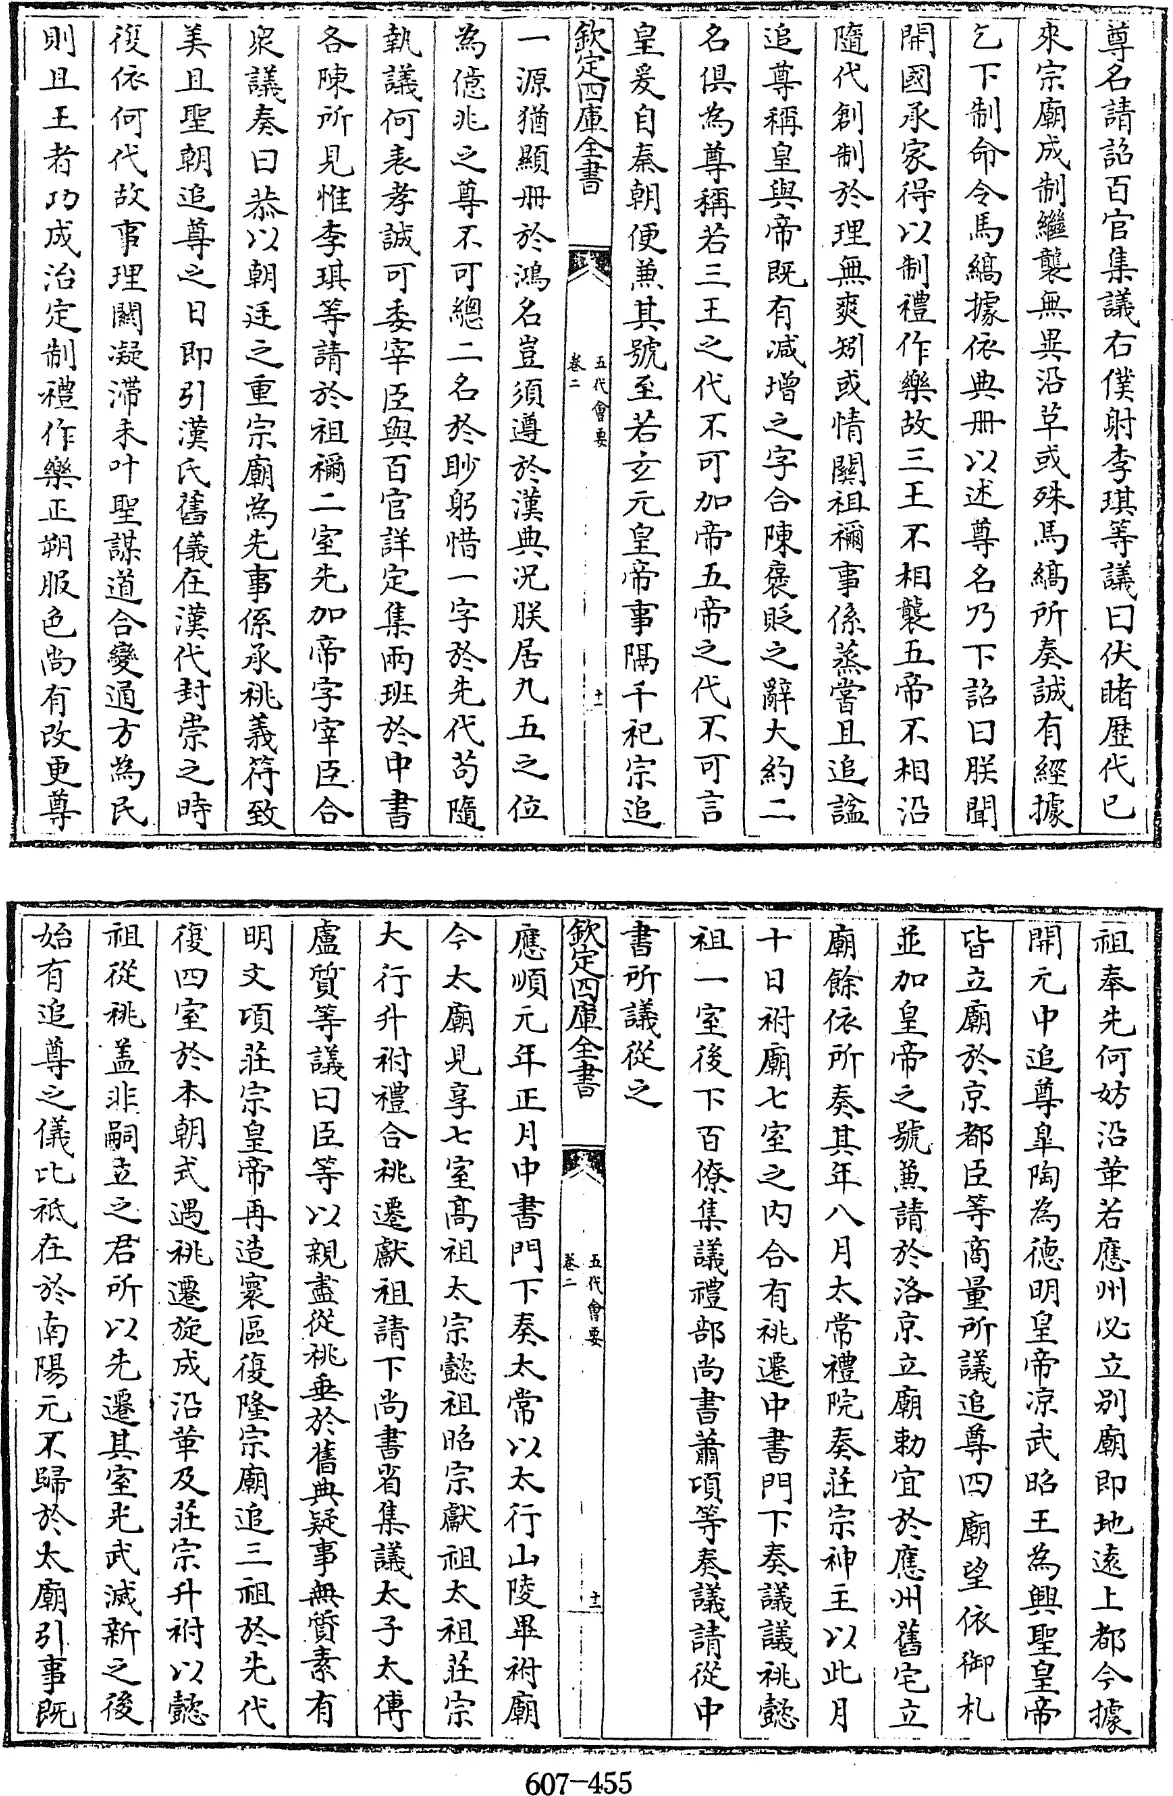 尊名請詔百官集議右僕射李琪等議曰伏睹歴代已
來宗廟成制繼襲無異沿革或殊馬縞所奏誠有經據
乞下制命令馬縞據依典册以述尊名乃下詔曰朕聞
開國承家得以制禮作樂故三王不相襲五帝不相沿
隨代創制於理無爽矧或情關祖禰事係蒸嘗且追諡
追尊稱皇與帝既有減增之字合陳褒貶之辭大約二
名俱為尊稱若三王之代不可加帝五帝之代不可言
皇爰自秦朝便兼其號至若玄元皇帝事隔千祀宗追
欽定四庫全書
五代會要
卷二
十一
一源猶顯册於鴻名豈須遵於漢典况朕居九五之位
為億兆之尊不可總二名於眇躬惜一字於先代苟隨
執議何表孝誠可委宰臣與百官詳定集兩班於中書
各陳所見惟李琪等請於祖禰二室先加帝字宰臣合
衆議奏曰恭以朝廷之重宗廟為先事係承祧義符致
美且聖朝追尊之日即引漢氏舊儀在漢代封崇之時
復依何代故事理闗凝滯未叶聖謀道合變通方為民
則且王者功成治定制禮作樂正朔服色尚有改更尊
祖奉先何妨沿革若應州必立别廟即地遠上都今據
開元中追尊皐陶為德明皇帝凉武昭王為興聖皇帝
皆立廟於京都臣等商量所議追尊四廟望依御札
並加皇帝之號兼請於洛京立廟勅宜於應州舊宅立
廟餘依所奏其年八月太常禮院奏莊宗神主以此月
十日祔廟七室之内合有祧遷中書門下奏議議祧懿
祖一室後下百僚集議禮部尚書蕭頃等奏議請從中
書所議從之
欽定四庫全書
五代會要
卷二
十二
應順元年正月中書門下奏太常以太行山陵畢祔廟
今太廟見享七室髙祖太宗懿祖昭宗獻祖太祖莊宗
大行升祔禮合祧遷獻祖請下尚書省集議太子太傅
盧質等議曰臣等以親盡從祧垂於舊典疑事無質素有
明文頃莊宗皇帝再造寰區復隆宗廟追三祖於先代
復四室於本朝式遇祧遷旋成沿革及莊宗升祔以懿
祖從祧盖非嗣立之君所以先遷其室光武滅新之後
始有追尊之儀比祇在於南陽元不歸於太廟引事既
607-455